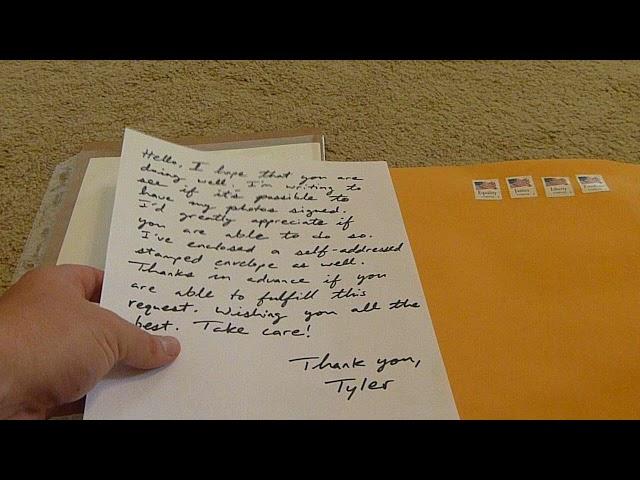 Hello, I hope that you are
doing well. I'm writing to
see if it's possible to
have my photos signed.
I'd greatly appreciate if
you are able to do so.
I've enclosed a self-addressed
stamped envelope as well.
Thanks in advance if you
are able to fulfill this
request. Wishing you all the
best. Take care!
Thank you,
Tyler
Equality
Justice
Liberty